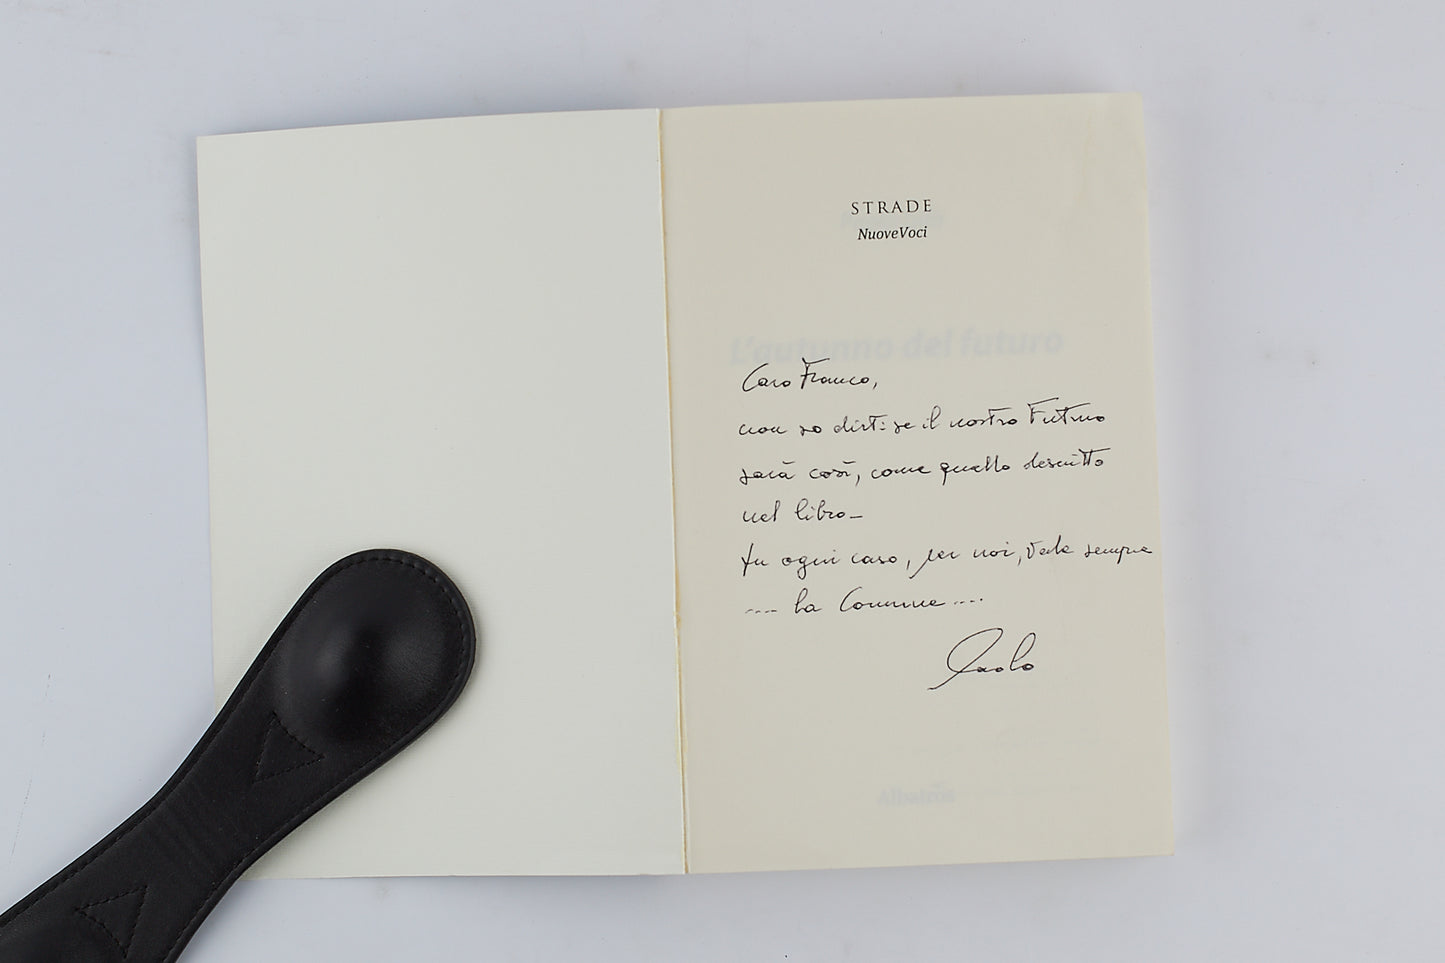 STRADE
NuoveVoci
L'autunno del futuro
Caro Franco,
non so dirti se il nostro Futuro
sarà così, come quello descritto
nel libro_
In ogni caso, per noi, vale sempre
.... la Comune ....
Paolo
Albatros